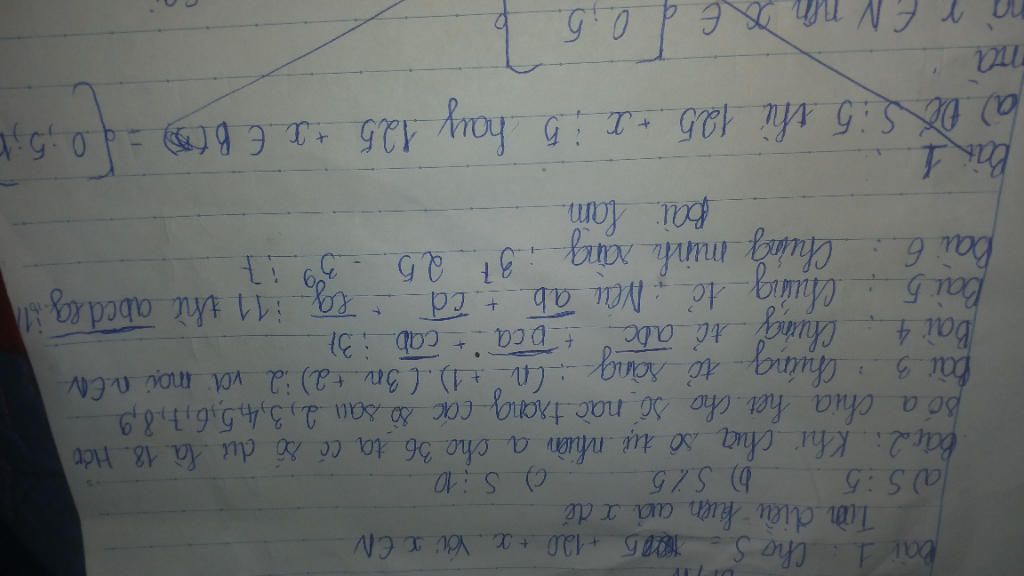 Bài 1: Cho S = 5 + 120 + x với x ∈ N
Tìm điều kiện của x để
a) S ⋮ 5 b) S ⋮̸ 5 c) S ⋮ 10
Bài 2: Khi chia số tự nhiên a cho 36 ta có số dư là 18. Hỏi
số a chia hết cho số nào trong các số sau 2,3,4,5,6,7,8,9
Bài 3: Chứng tỏ rằng: (n+1).(3n+2) ⋮ 2 với mọi n ∈ N
Bài 4: Chứng tỏ abc + bca + cab ⋮ 37
Bài 5: Chứng tỏ: Nếu ab + cd + eg ⋮ 11 thì abcdeg ⋮ 11
Bài 6: Chứng minh rằng: 25 - 39 ⋮ 7
Bài làm
Bài 1
a) Để S ⋮ 5 thì 125 + x ⋮ 5 hay 125 + x ∈ B = { 0; 5;
mà
mà x ∈ N nên x ∈ { 0; 5